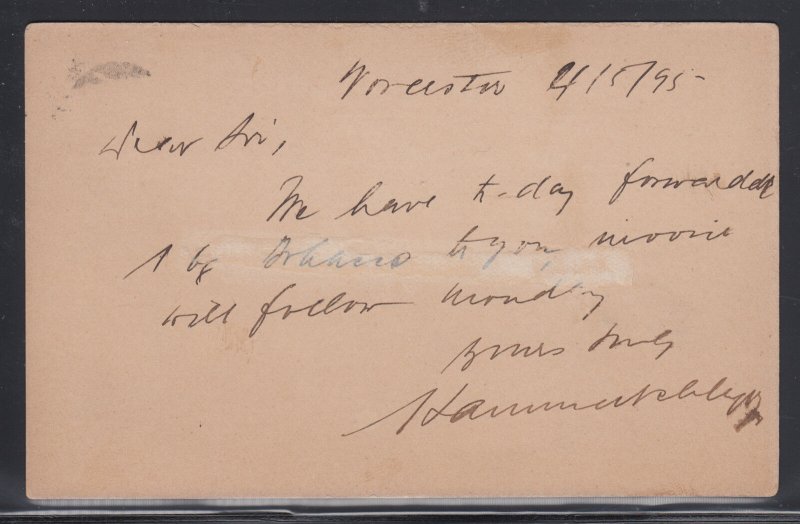 Worcester 4/5/95-
Dear Sir,
We have to-day forwarded
1 bx Tobacco to you, invoice
will follow Monday
Yours truly